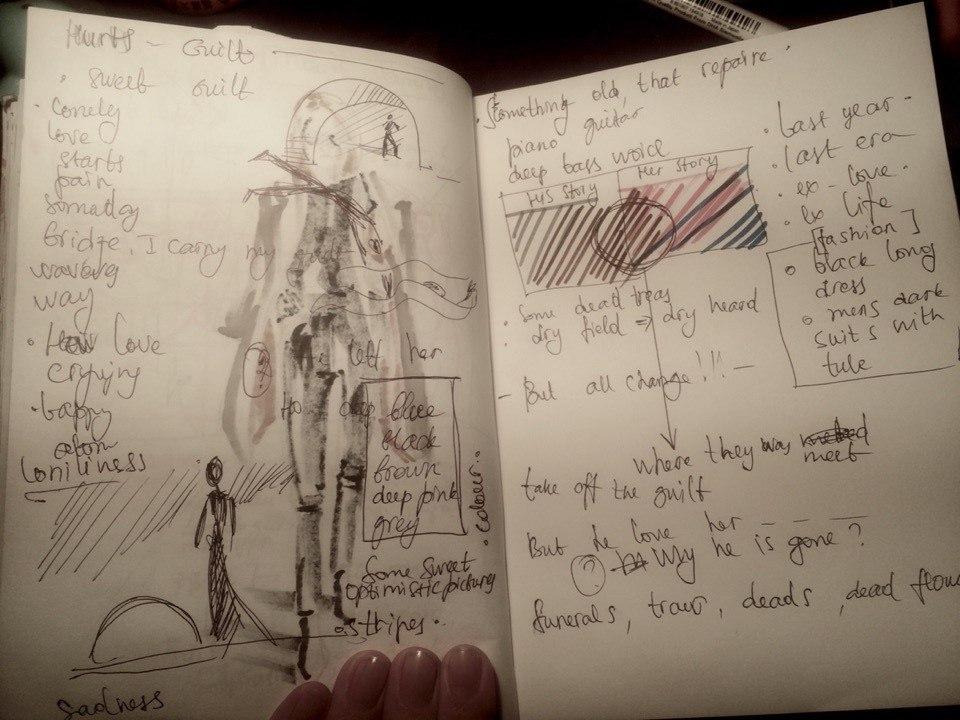 Hurts - Guilt
• sweet guilt
• lonely
love
starts
pain
someday
bridge. I carry my
waving
way
• How love
crying
• happy
loniliness
left her
blue
black
brown
deep pink
grey
• Colour..
Some sweet
optimistic picture
stripes..
sadness
• Something old, that repaire
piano guitar
deep bass woice
His story
Her story
• Last year -
• last era
• ex-love.
• Ex life
[fashion]
• black long
dress
• mens dark
suits with
tule
• Some dead treas
dry field => dry heard
- But all change!!! -
where they was
meet
take off the guilt
But he love her - - -
? Why he is gone?
funerals, traur, deads, dead flow